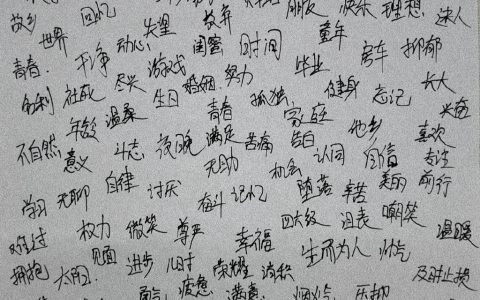 朋友 快乐 理想 迷人
故乡 回忆 失望 放弃 童年
世界 动心 闺蜜 旧时间 房车 抑郁
青春 干净 游戏 毕业
名利 社死 尽兴 生日 婚姻 努力 孤独 健身 忘记 长大
年龄 温柔 青春 家庭 兴奋
不自然 意义 斗志 夜晚 满足 苦痛 告白 他乡 喜欢
无助 机会 认同 自信 专注
学习 无聊 自律 讨厌 奋斗 记忆 堕落 辛苦 美丽 前行
难过 权力 微笑 尊严 幸福 四六级 嘲笑 温暖
拥抱 太阳 见面 进步 儿时 荣耀 消积 生而为人 帅气 及时止损
疲惫 满意 压抑